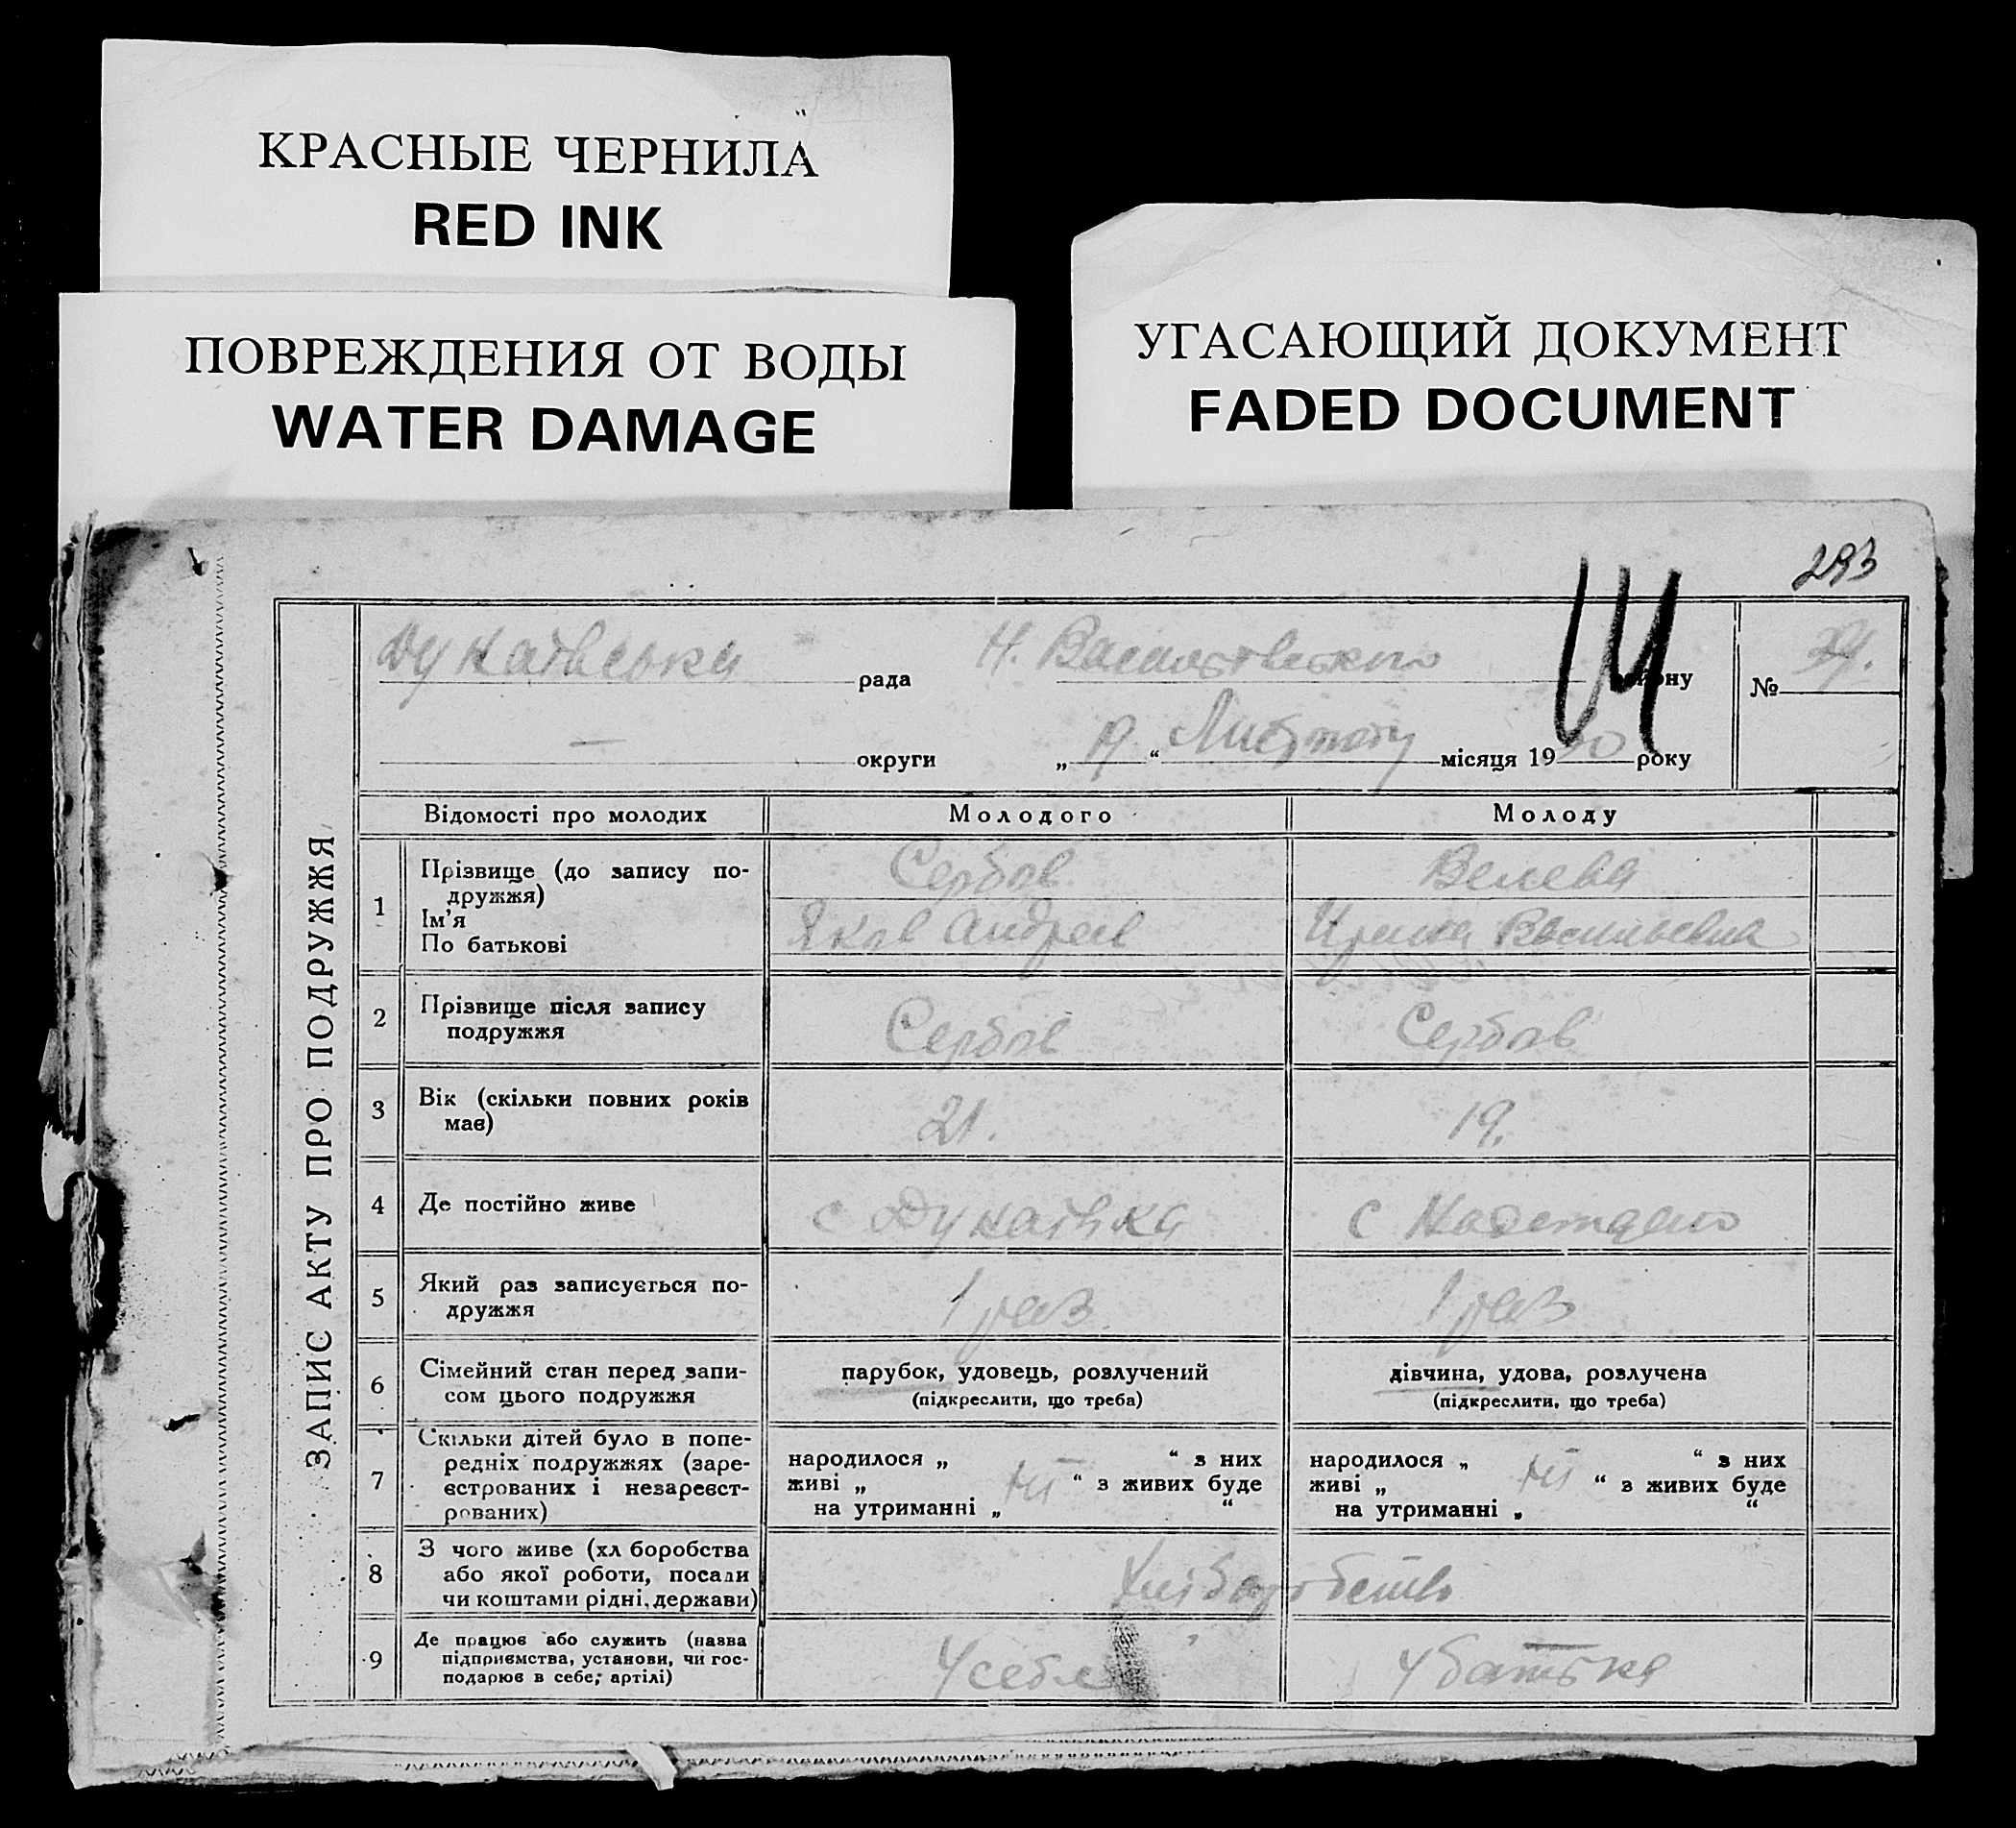 КРАСНЫЕ ЧЕРНИЛА
RED INK
ПОВРЕЖДЕНИЯ ОТ ВОДЫ
WATER DAMAGE
УГАСАЮЩИЙ ДОКУМЕНТ
FADED DOCUMENT
293
рада району №
— округи „ 19 “ місяця 1930 року
ЗАПИС АКТУ ПРО ПОДРУЖЖЯ
Відомості про молодих Молодого Молоду
1 Прізвище (до запису по-
дружжя)
Ім’я
По батькові
Сербов
Яков Андреев
Велева
Ирина Васильевна
2 Прізвище після запису
подружжя
Сербов Сербов
3 Вік (скільки повних років
має)
21. 19.
4 Де постійно живе
5 Який раз записується по-
дружжя
1 раз. 1 раз
6 Сімейний стан перед запи-
сом цього подружжя
парубок, удовець, розлучений
(підкреслити, що треба)
дівчина, удова, розлучена
(підкреслити, що треба)
7 Скільки дітей було в попе-
редніх подружжях (заре-
єстрованих і незареєст-
рованих)
народилося „ “ з них
живі „ ні “ з живих буде
на утриманні „ “
народилося „ “ з них
живі „ ні “ з живих буде
на утриманні „ “
8 З чого живе (хл боробства
або якої роботи, посади
чи коштами рідні, держави)
Хліборобство
9 Де працює або служить (назва
підприємства, установи, чи гос-
подарює в себе, артілі)
У себе У батька